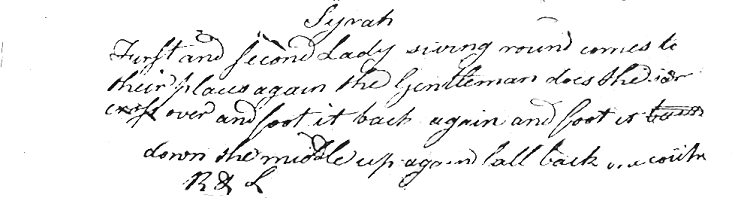 Syrah
Furst and second Lady swing round comes to
their places again the Gentleman does the
cross over and foot it back again and foot it
down the middle up again fall back
R & L